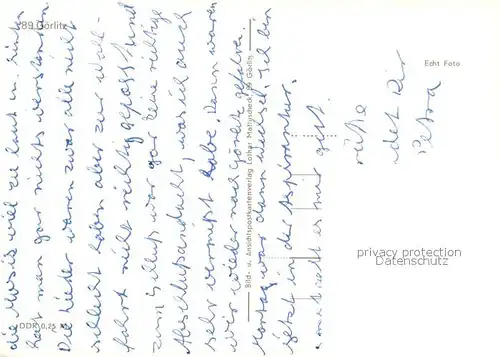 89 Görlitz
Echt Foto
die Musik viel zu laut u. hinten
hat man gar nichts verstanden
Die Lieder waren zwar alle nicht
schlecht haben aber zur Wall-
fahrt nicht richtig gepasst und
zum Schluß war gar keine richtige
Abschlußandacht, was ich auch
sehr vermißt habe. Dann waren
wir wieder nach Görlitz gefahren
Montag war dann Wechsel. Ich bin
jetzt in der Aspirantur.
geht es mir gut.
Petra
Bild- u. Ansichtspostkartenverlag Lothar Mattyscheck 89 Görlitz
DDR 0,25 M
privacy protection
Datenschutz